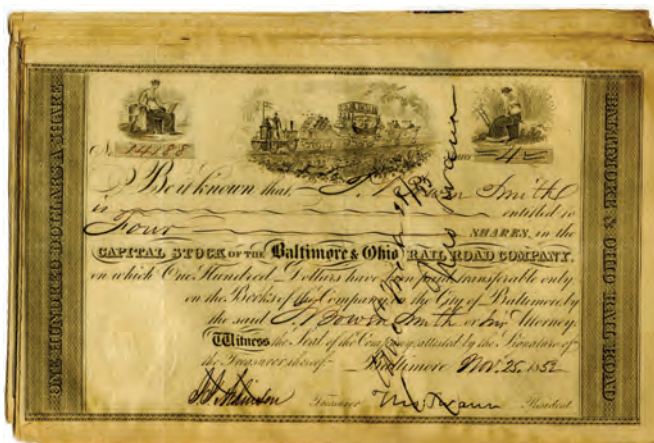 ONE HUNDRED DOLLARS A SHARE
BALTIMORE & OHIO RAIL ROAD
No. 14188
Shares 4
Be it known that, Bowen Smith
is entitled to
Four SHARES, in the
CAPITAL STOCK OF THE Baltimore & Ohio RAIL ROAD COMPANY.
on which One Hundred Dollars have been paid, transferable only
on the Books of the Company in the City of Baltimore by
the said Bowen Smith or his Attorney.
Witness the Seal of the Company, attested by the Signature of
the Treasurer thereof Baltimore Nov. 25, 1852
Treasurer Tho: Swann President
Tho Swann